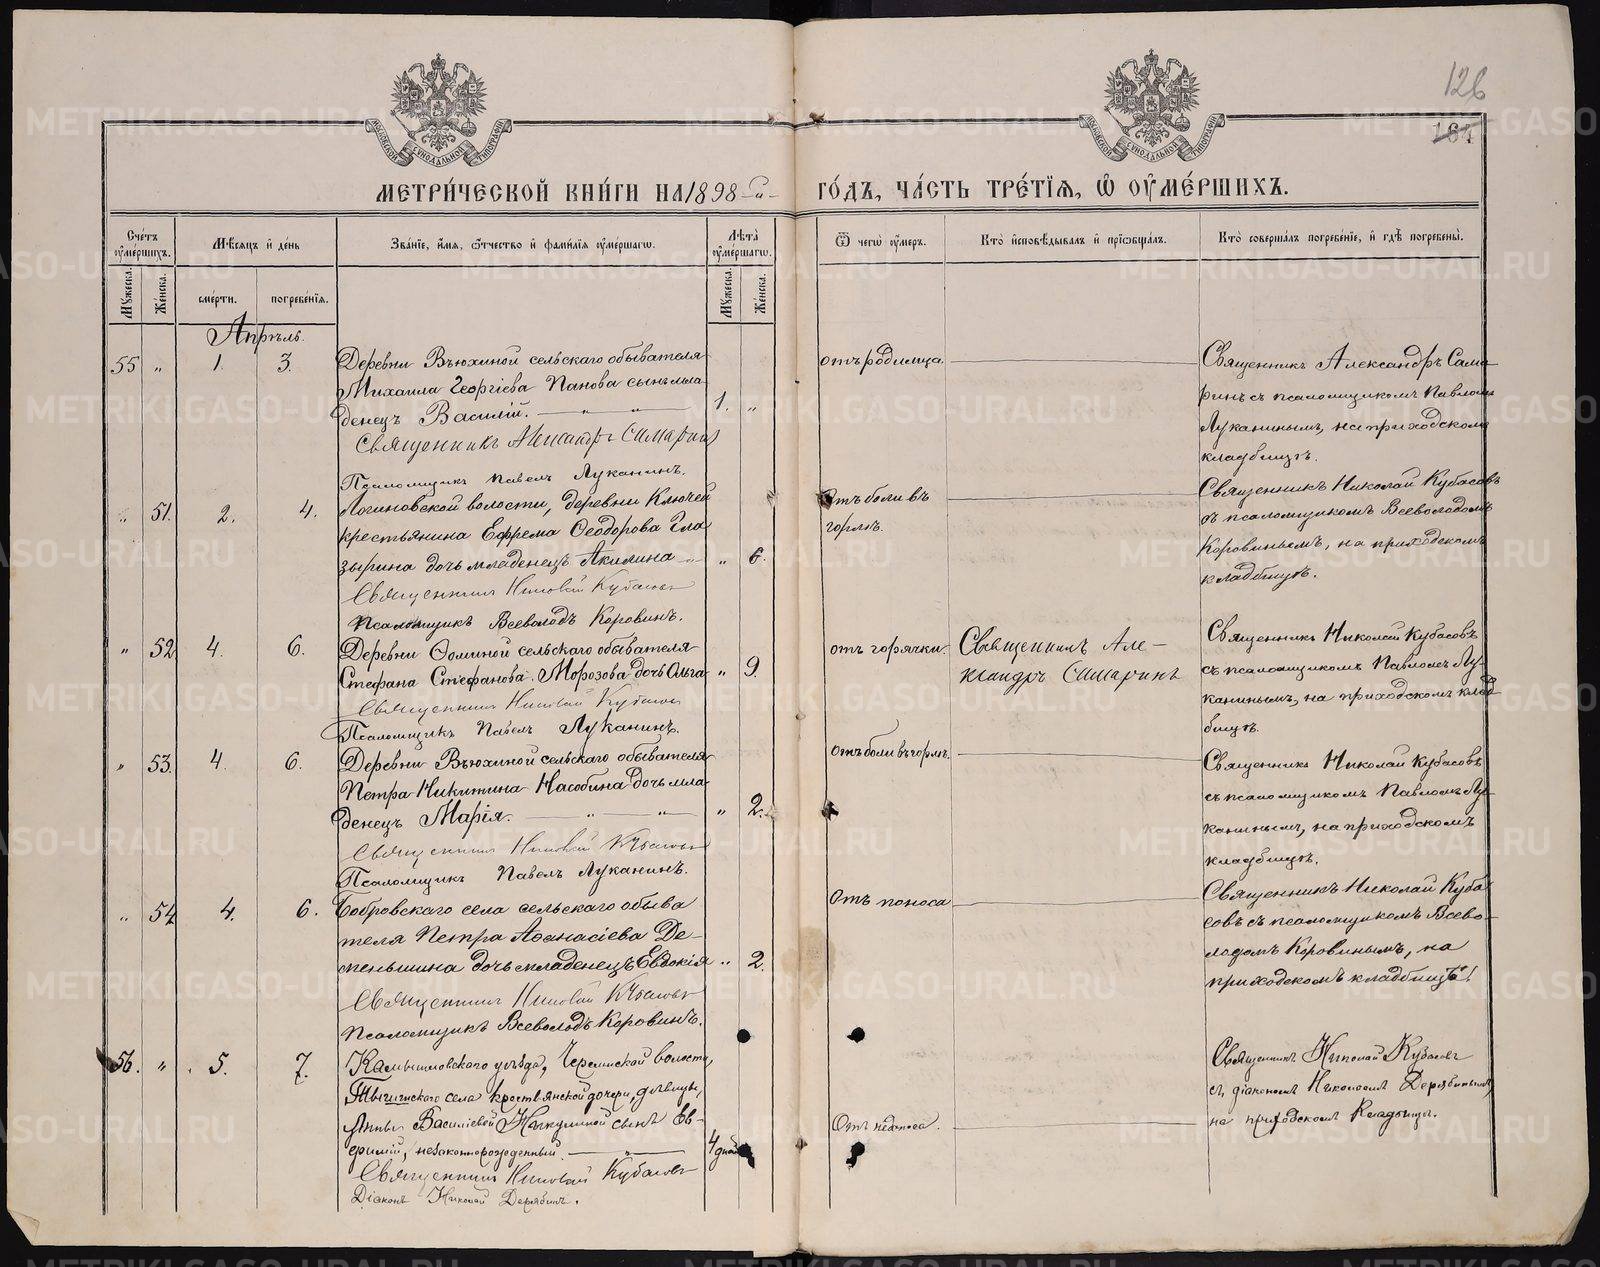 126
184
МОСКОВСКОЙ СѴНОДАЛЬНОЙ ТИПОГРАФІИ
МОСКОВСКОЙ СѴНОДАЛЬНОЙ ТИПОГРАФІИ
МЕТРИ́ЧЕСКОЙ КНИ́ГИ НА 1898-й
ГО́ДЪ, ЧА́СТЬ ТРЕ́ТІѦ, Ѽ ОУМЕ́РШИХЪ.
Сче́тъ оуме́ршихъ.
Мѣ́сѧцъ и де́нь
Зва́нїе, и́мѧ, ѻ́тчество и фами́лїѧ оуме́ршагѡ.
Лѣ́та оуме́ршагѡ.
Ѿ чегѡ̀ оу́меръ.
Кто̀ исповѣ́дывалъ и прїѡбща́лъ.
Кто̀ соверша́лъ погребе́нїе, и гдѣ̀ погребены̀.
Мꙋжеска. Же́нска.
сме́рти. погребе́нїѧ.
Мꙋжеска. Же́нска.
Апрѣль.
55 " 1. 3. Деревни Вьюхиной сельскаго обывателя
Михаила Георгіева Панова сынъ мла-
денецъ Василій. — " — " — 1. "
Священникъ Александръ Самаринъ
Псаломщикъ Павелъ Луканинъ.
отъ родимца.
Священникъ Александръ Сама-
ринъ съ псаломщикомъ Павломъ
Луканинымъ, на приходскомъ
кладбищѣ.
" 51. 2. 4. Логиновской волости, деревни Ключей
крестьянина Ефрема Ѳеодорова Гла
зырина дочь младенецъ Акилина " 6.
Священникъ Николай Кубасовъ
Псаломщикъ Всеволодъ Коровинъ.
Отъ боли въ
горлѣ.
Священникъ Николай Кубасовъ
съ псаломщикомъ Всеволодомъ
Коровинымъ, на приходскомъ
кладбищѣ.
" 52 4. 6. Деревни Ѳоминой сельскаго обывателя
Стефана Стефанова Морозова дочь Ольга " 9.
Священникъ Николай Кубасовъ
Псаломщикъ Павелъ Луканинъ.
отъ горячки.
Священникъ Але-
ксандръ Самаринъ
Священникъ Николай Кубасовъ
съ псаломщикомъ Павломъ Лу-
канинымъ, на приходскомъ клад
бищѣ.
" 53. 4. 6. Деревни Вьюхиной сельскаго обывателя
Петра Никитина Насобина дочь мла-
денецъ Марія. — " — " — " 2.
Священникъ Николай Кубасовъ
Псаломщикъ Павелъ Луканинъ.
отъ боли въ горлѣ.
Священникъ Николай Кубасовъ
съ псаломщикомъ Павломъ Лу-
канинымъ, на приходскомъ
кладбищѣ.
" 54 4. 6. Бобровскаго села сельскаго обыва
теля Петра Аѳанасіева Де-
меньшина дочь младенецъ Евдокія " 2.
Священникъ Николай Кубасовъ
Псаломщикъ Всеволодъ Коровинъ.
Отъ поноса
Священникъ Николай Куба
совъ съ псаломщикомъ Всево-
лодомъ Коровинымъ, на
приходскомъ кладбищѣ!
56. " 5. 7. Камышловскаго уѣзда, волости,
села крестьянской дочери, дѣвицы,
Анны Василіевой сынъ Ев-
фимій, незаконнорожденный. — " — 4 дней
Священникъ Николай Кубасовъ
Діаконъ Николай Дерябинъ.
Отъ поноса.
Священникъ Николай Кубасовъ
съ діакономъ Николаемъ Дерябинымъ,
на приходскомъ кладбищѣ.
METRIKI.GASO-URAL.RU